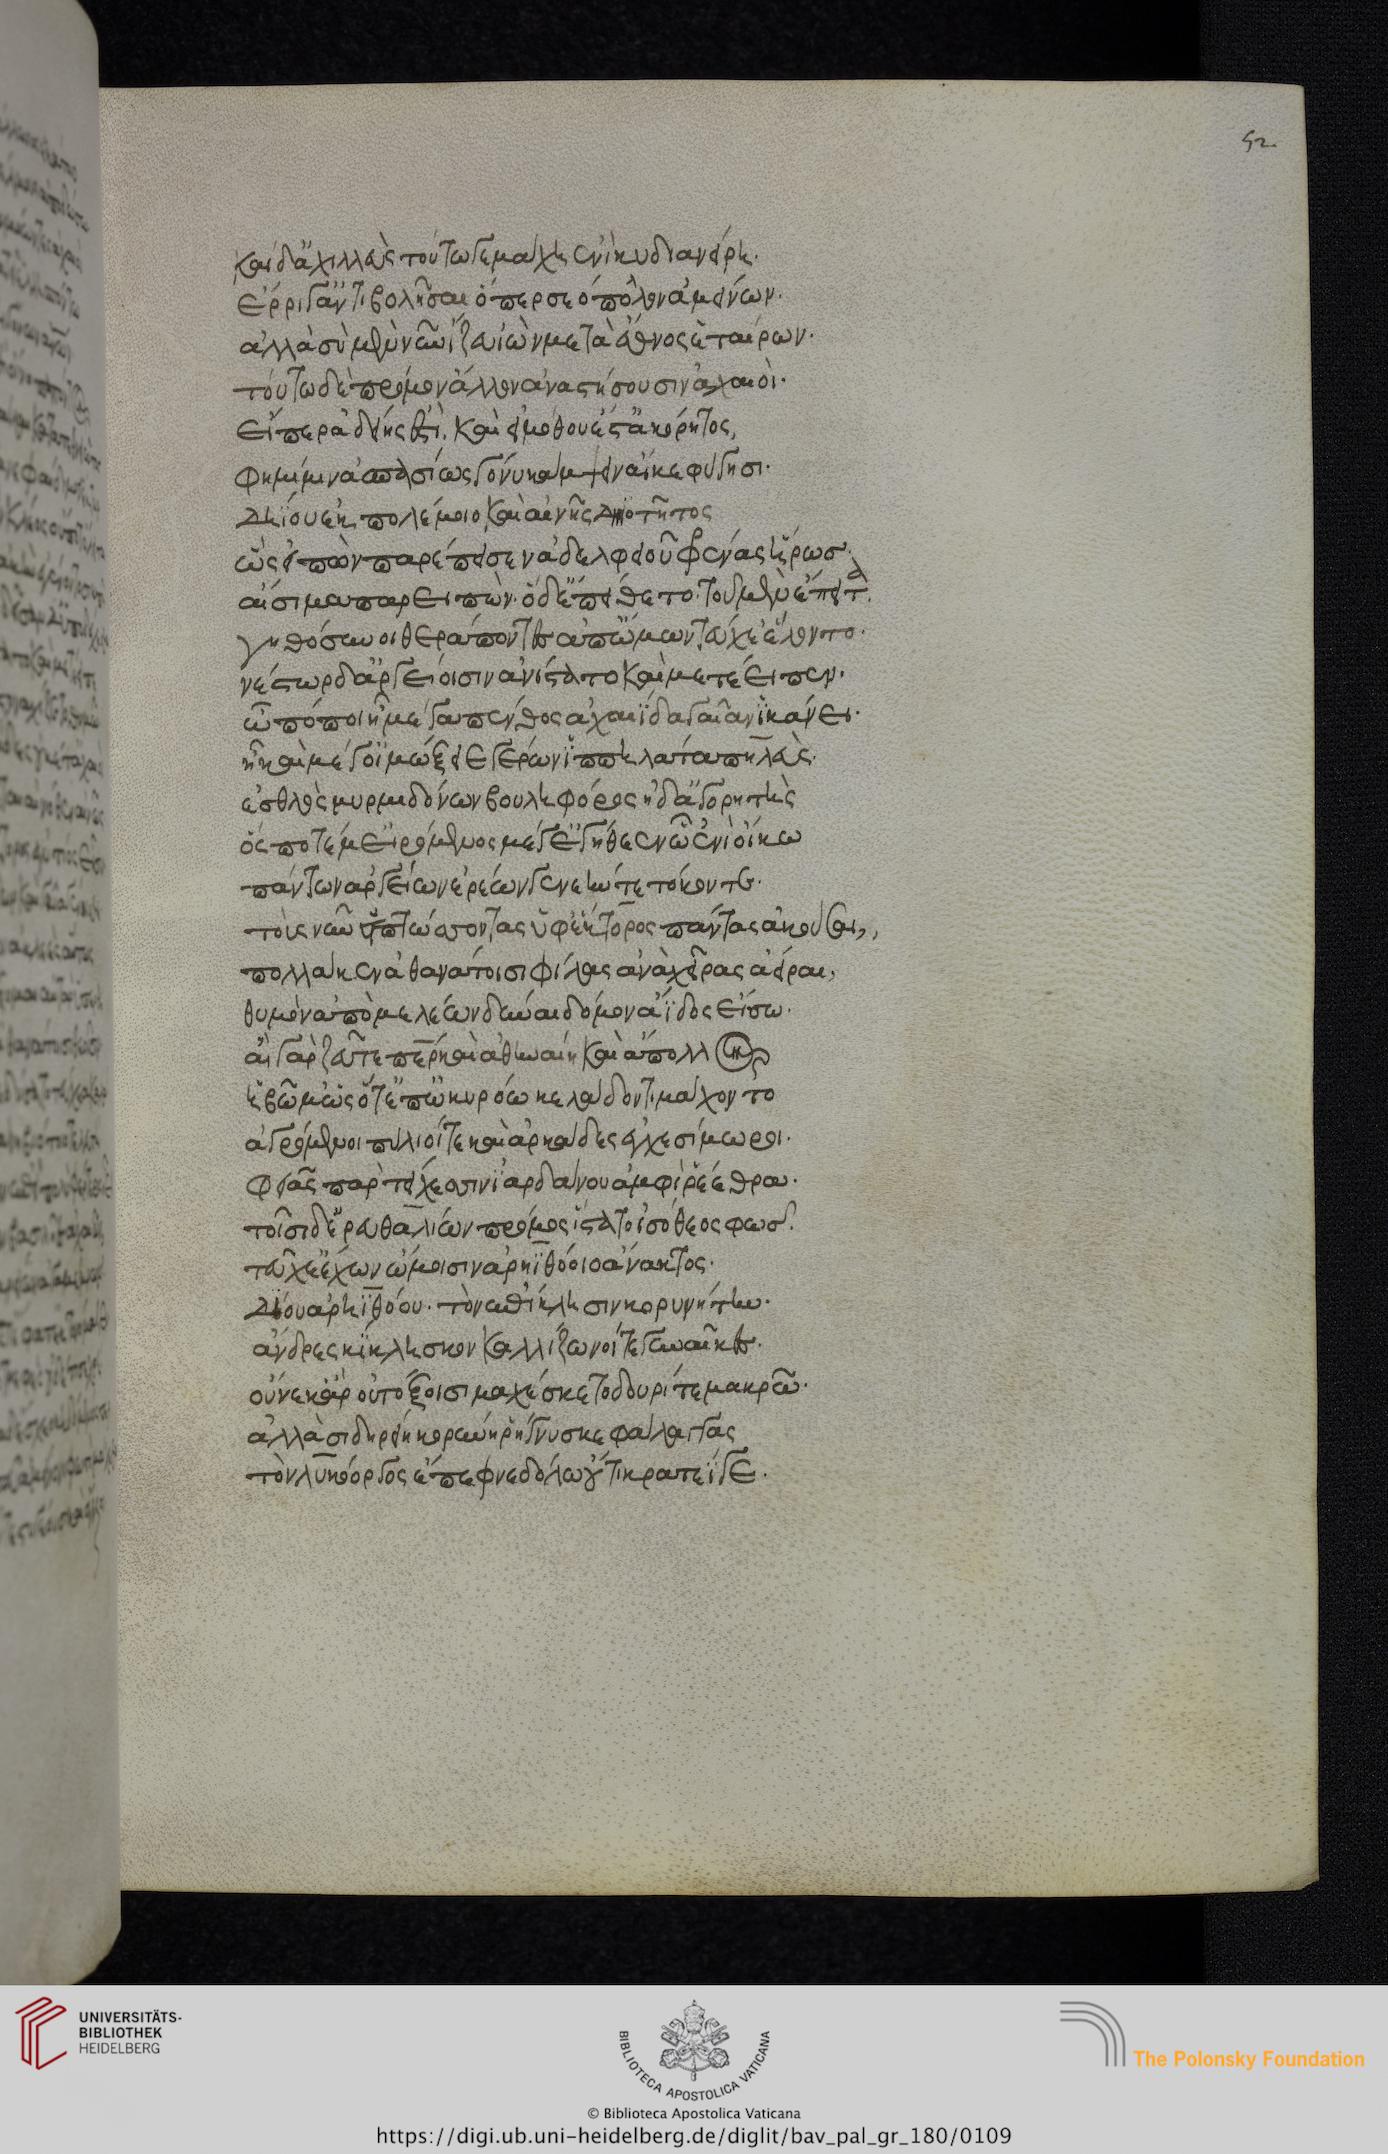 52
καὶ δ' ἀχιλλεὺς τούτω γε μάχη ἐνὶ κυδιανείρη·
ἔρριγ' ἀντιβολῆσαι ὅπερ σέο πολλὸν ἀμείνων·
ἀλλὰ σὺ μὲν νῦν ἵζευ ἰὼν μετὰ ἔθνος ἑταίρων·
τούτω δὲ πρόμον ἄλλον ἀναστήσουσιν ἀχαιοὶ·
εἴπερ ἀδειής ἐστὶ, καὶ εἰ μόθου ἔστ' ἀκόρητος,
φημί μιν ἀσπασίως γόνυ κάμψειν αἴκε φύγησι·
δηΐου ἐκ πολέμοιο καὶ αἰνῆς δηϊοτῆτος
ὣς εἰπὼν παρέπεισεν ἀδελφειοῦ φρένας ἥρως·
αἴσιμα παρειπὼν· ὁ δ' ἐπείθετο· τοῦ μὲν ἔπειτα
γηθόσυνοι θεράποντες ἀπ' ὤμων τεύχε' ἕλοντο·
νέστωρ δ' ἀργείοισιν ἀνίστατο καὶ μετέειπεν·
ὢ πόποι ἦ μέγα πένθος ἀχαιΐδα γαῖαν ἱκάνει·
ἦ κε μέγ' οἰμώξειε γέρων ἱππηλάτα πηλεὺς·
ἐσθλὸς μυρμιδόνων βουληφόρος ἠδ' ἀγορητὴς
ὅς ποτέ μ' εἰρόμενος μέγ' ἐγήθεεν ὧ ἐνὶ οἴκω
πάντων ἀργείων ἐρέων γενεήν τε τόκον τε·
τοὺς νῦν εἰ πτώσσοντας ὑφ' ἕκτορος πάντας ἀκούσαι,
πολλά κεν ἀθανάτοισι φίλας ἀνὰ χεῖρας ἀείραι,
θυμὸν ἀπὸ μελέων δῦναι δόμον ἄϊδος εἴσω·
αἲ γὰρ ζεῦ τε πάτερ καὶ ἀθηναίη καὶ ἄπολλον
ἡβῶμ' ὡς ὅτ' ἐπ' ὠκυρόω κελάδοντι μάχοντο
ἀγρόμενοι πύλιοί τε καὶ ἀρκάδες ἐγχεσίμωροι·
φειᾶς πὰρ τείχεσσιν ἰαρδάνου ἀμφὶ ῥέεθρα·
τοῖσι δ' ἐρευθαλίων πρόμος ἵστατο ἰσόθεος φώς·
τεύχε' ἔχων ὤμοισιν ἀρηϊθόοιο ἄνακτος·
δίου ἀρηϊθόου· τὸν ἐπίκλησιν κορυνήτην·
ἄνδρες κίκλησκον καλλίζωνοί τε γυναῖκες·
οὕνεκ' ἄρ' οὐ τόξοισι μαχέσκετο δουρί τε μακρῶ·
ἀλλὰ σιδηρείη κορύνη ῥήγνυσκε φάλαγγας
τὸν λυκόοργος ἔπεφνε δόλω οὔτι κράτεΐ γε·
UNIVERSITÄTS-
BIBLIOTHEK
HEIDELBERG
BIBLIOTECA APOSTOLICA VATICANA
The Polonsky Foundation
© Biblioteca Apostolica Vaticana
https://digi.ub.uni-heidelberg.de/diglit/bav_pal_gr_180/0109